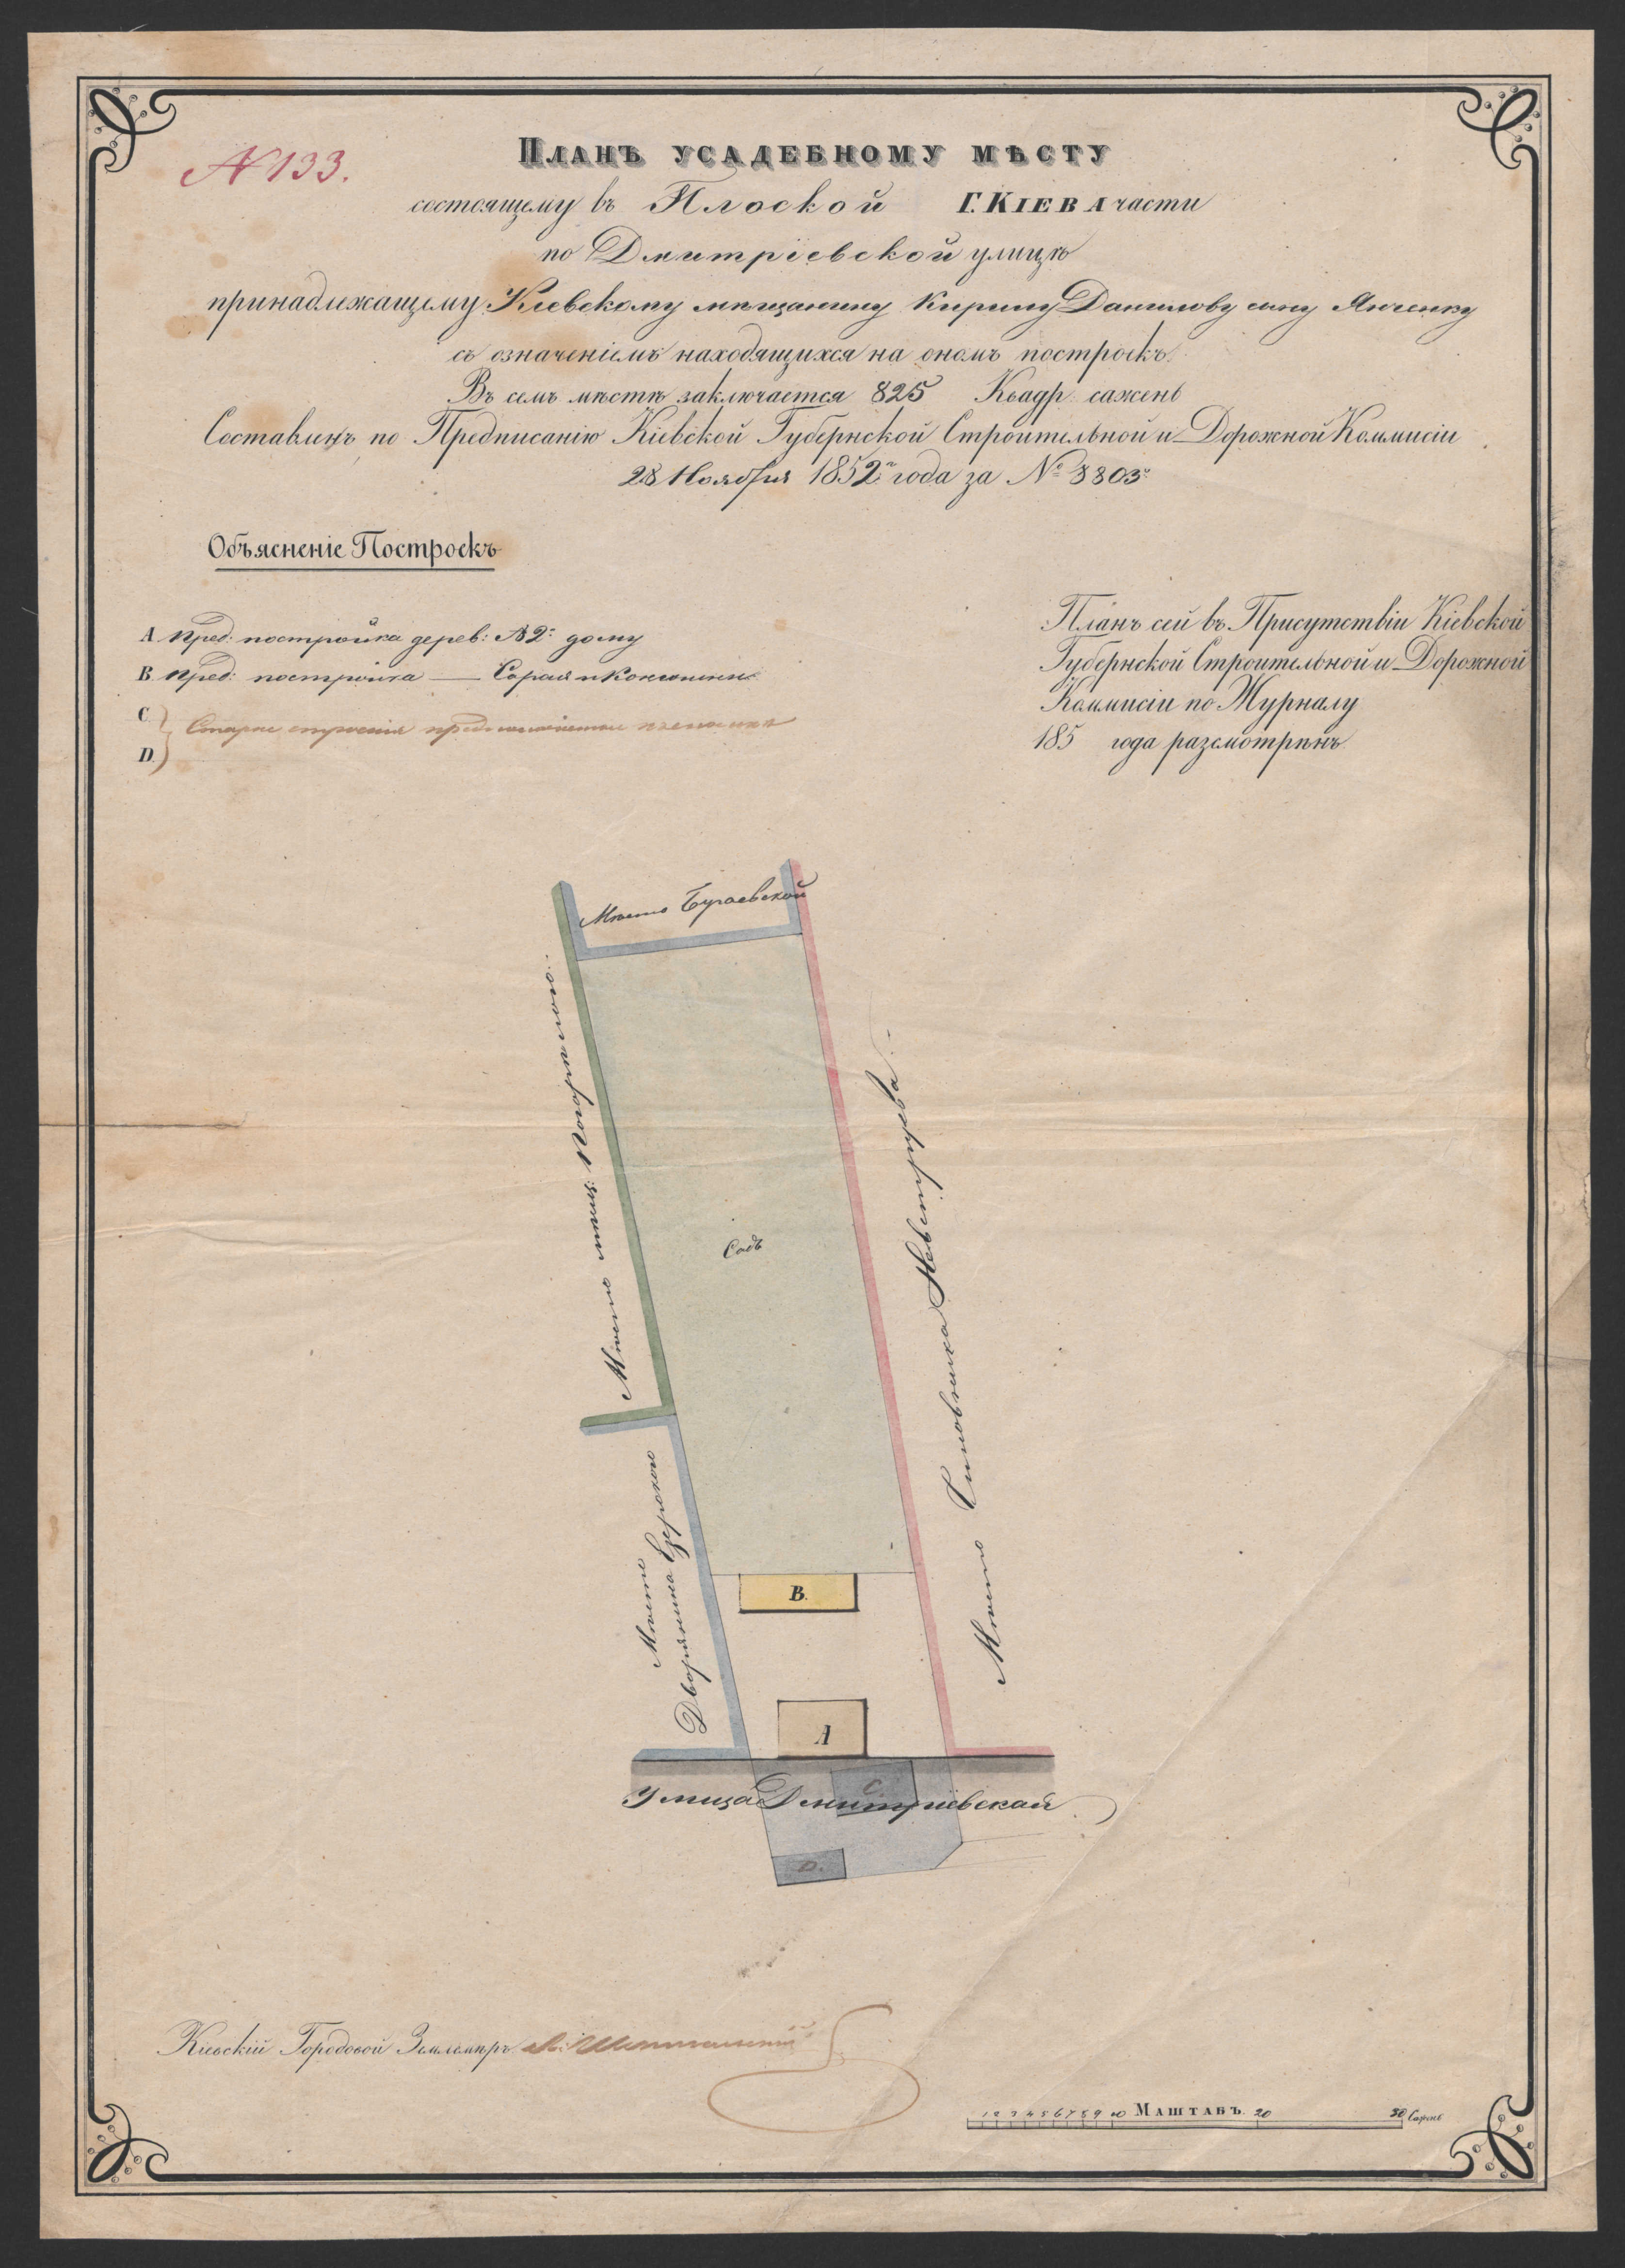 N 133.
Планъ усадебному мѣсту
состоящему въ Плоской Г. Кіева части
по Дмитріевской улицѣ
принадлежащему Кіевскому мѣщанину Кирилу Данилову сыну Янченку
съ означеніемъ находящихся на ономъ построекъ.
Въ семъ мѣстѣ заключается 825 Квадр. сажень
Составленъ по Предписанію Кіевской Губернской Строительной и Дорожной Коммисіи
28 Ноября 1852 года за № 8803
Объясненіе Построекъ
A пред: постройка дерев: № 2: дому
B пред: постройка — Сарая и Конюшни
C.
D. Старые строенія
Планъ сей въ Присутствіи Кіевской
Губернской Строительной и Дорожной
Коммисіи по Журналу
185 года разсмотрѣнъ
Мѣсто Бугаевской
Мѣсто мѣщ: Погорѣлого
Садъ
Мѣсто Чиновника Невструева
Мѣсто
Дворянина Езерского
B.
A
C.
Улица Дмитріевская
D.
Кіевскій Городовой Землемѣръ
1 2 3 4 5 6 7 8 9 10 Маштабъ. 20 30 Сажень